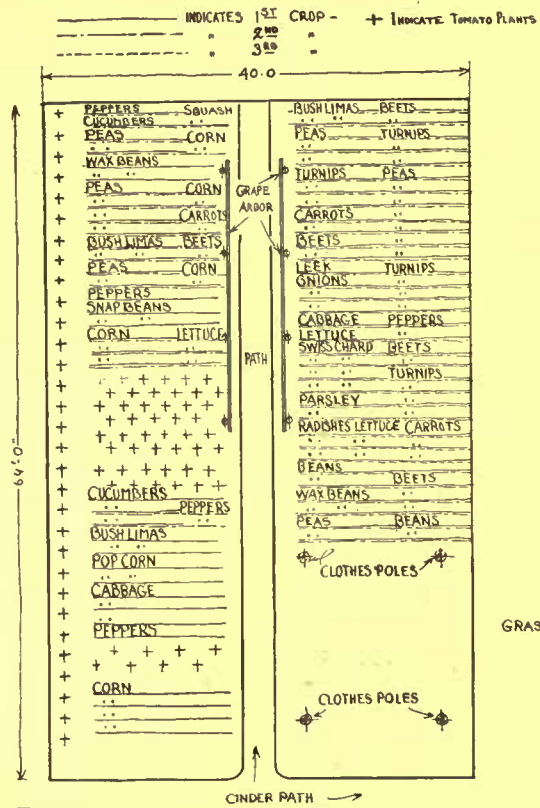 INDICATES 1ST CROP - + INDICATE TOMATO PLANTS
" 2ND "
" 3RD "
40.0
64'-0"
PEPPERS SQUASH
CUCUMBERS
PEAS CORN
WAX BEANS
PEAS CORN
CARROTS
BUSH LIMAS BEETS
PEAS CORN
PEPPERS
SNAP BEANS
CORN LETTUCE
CUCUMBERS
PEPPERS
BUSH LIMAS
POP CORN
CABBAGE
PEPPERS
CORN
GRAPE
ARBOR
PATH
BUSH LIMAS BEETS
PEAS TURNIPS
TURNIPS PEAS
CARROTS
BEETS
LEEK TURNIPS
ONIONS
CABBAGE PEPPERS
LETTUCE
SWISS CHARD BEETS
TURNIPS
PARSLEY
RADISHES LETTUCE CARROTS
BEANS
BEETS
WAX BEANS
PEAS BEANS
CLOTHES POLES
GRAS
CLOTHES POLES
CINDER PATH